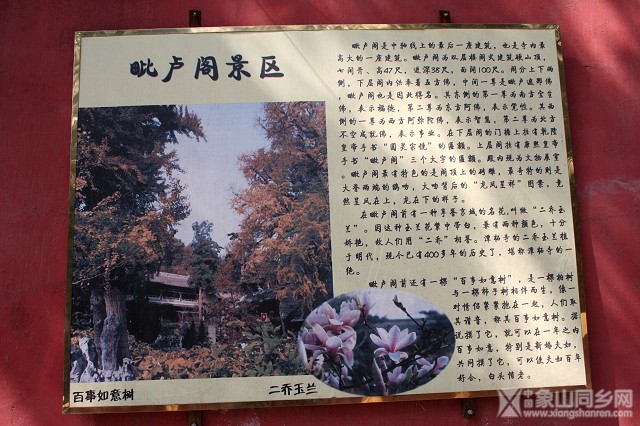 毗卢阁景区
毗卢阁是中轴线上的最后一座建筑，也是寺内最
高大的一座建筑。毗卢阁为双层楼阁式建筑硬山顶，
七间开、高47尺，进深38尺，面阔100尺。阁分上下两
侧，下层阁内供奉着五方佛，中间一尊是毗卢遮那佛
，毗卢阁也是因此得名。其东侧的第一尊为南方宝生
佛，表示福德，第二尊为东方阿閦佛，表示觉性。其西
侧的一尊为西方阿弥陀佛，表示智慧，第二尊为北方
不空成就佛，表示事业。在下层阁的门楣上挂有乾隆
皇帝手书“圆灵宗镜”的匾额。上层阁挂有康熙皇帝
手书“毗卢阁”三个大字的匾额。殿内现为文物展室
。毗卢阁最有特色的是阁顶上的砖雕，最奇特的则是
大脊两端的鸱吻，大吻背后的“龙凤呈祥”图案，竟
然呈凤在上，龙在下的样子。
在毗卢阁前有一种享誉京城的名花，叫做“二乔玉
兰”。因这种玉兰花紫中带白，兼有两种颜色，十分
娇艳，故人们用“二乔”相喜。潭柘寺的二乔玉兰植
于明代，现今已有400多年的历史了，堪称潭柘寺的一
绝。
毗卢阁前还有一棵“百事如意树”，是一棵柏树
与一棵柿子树相伴而生，像一
对情侣紧紧抱在一起，人们取
其谐音，称其百事如意树。据
说摸了它，就可以在一年之内
百事如意，特别是新婚夫妇，
共同摸了它，可以使夫妇百年
好合，白头偕老。
百事如意树
二乔玉兰
中国象山同乡网
www.xiangshanren.com